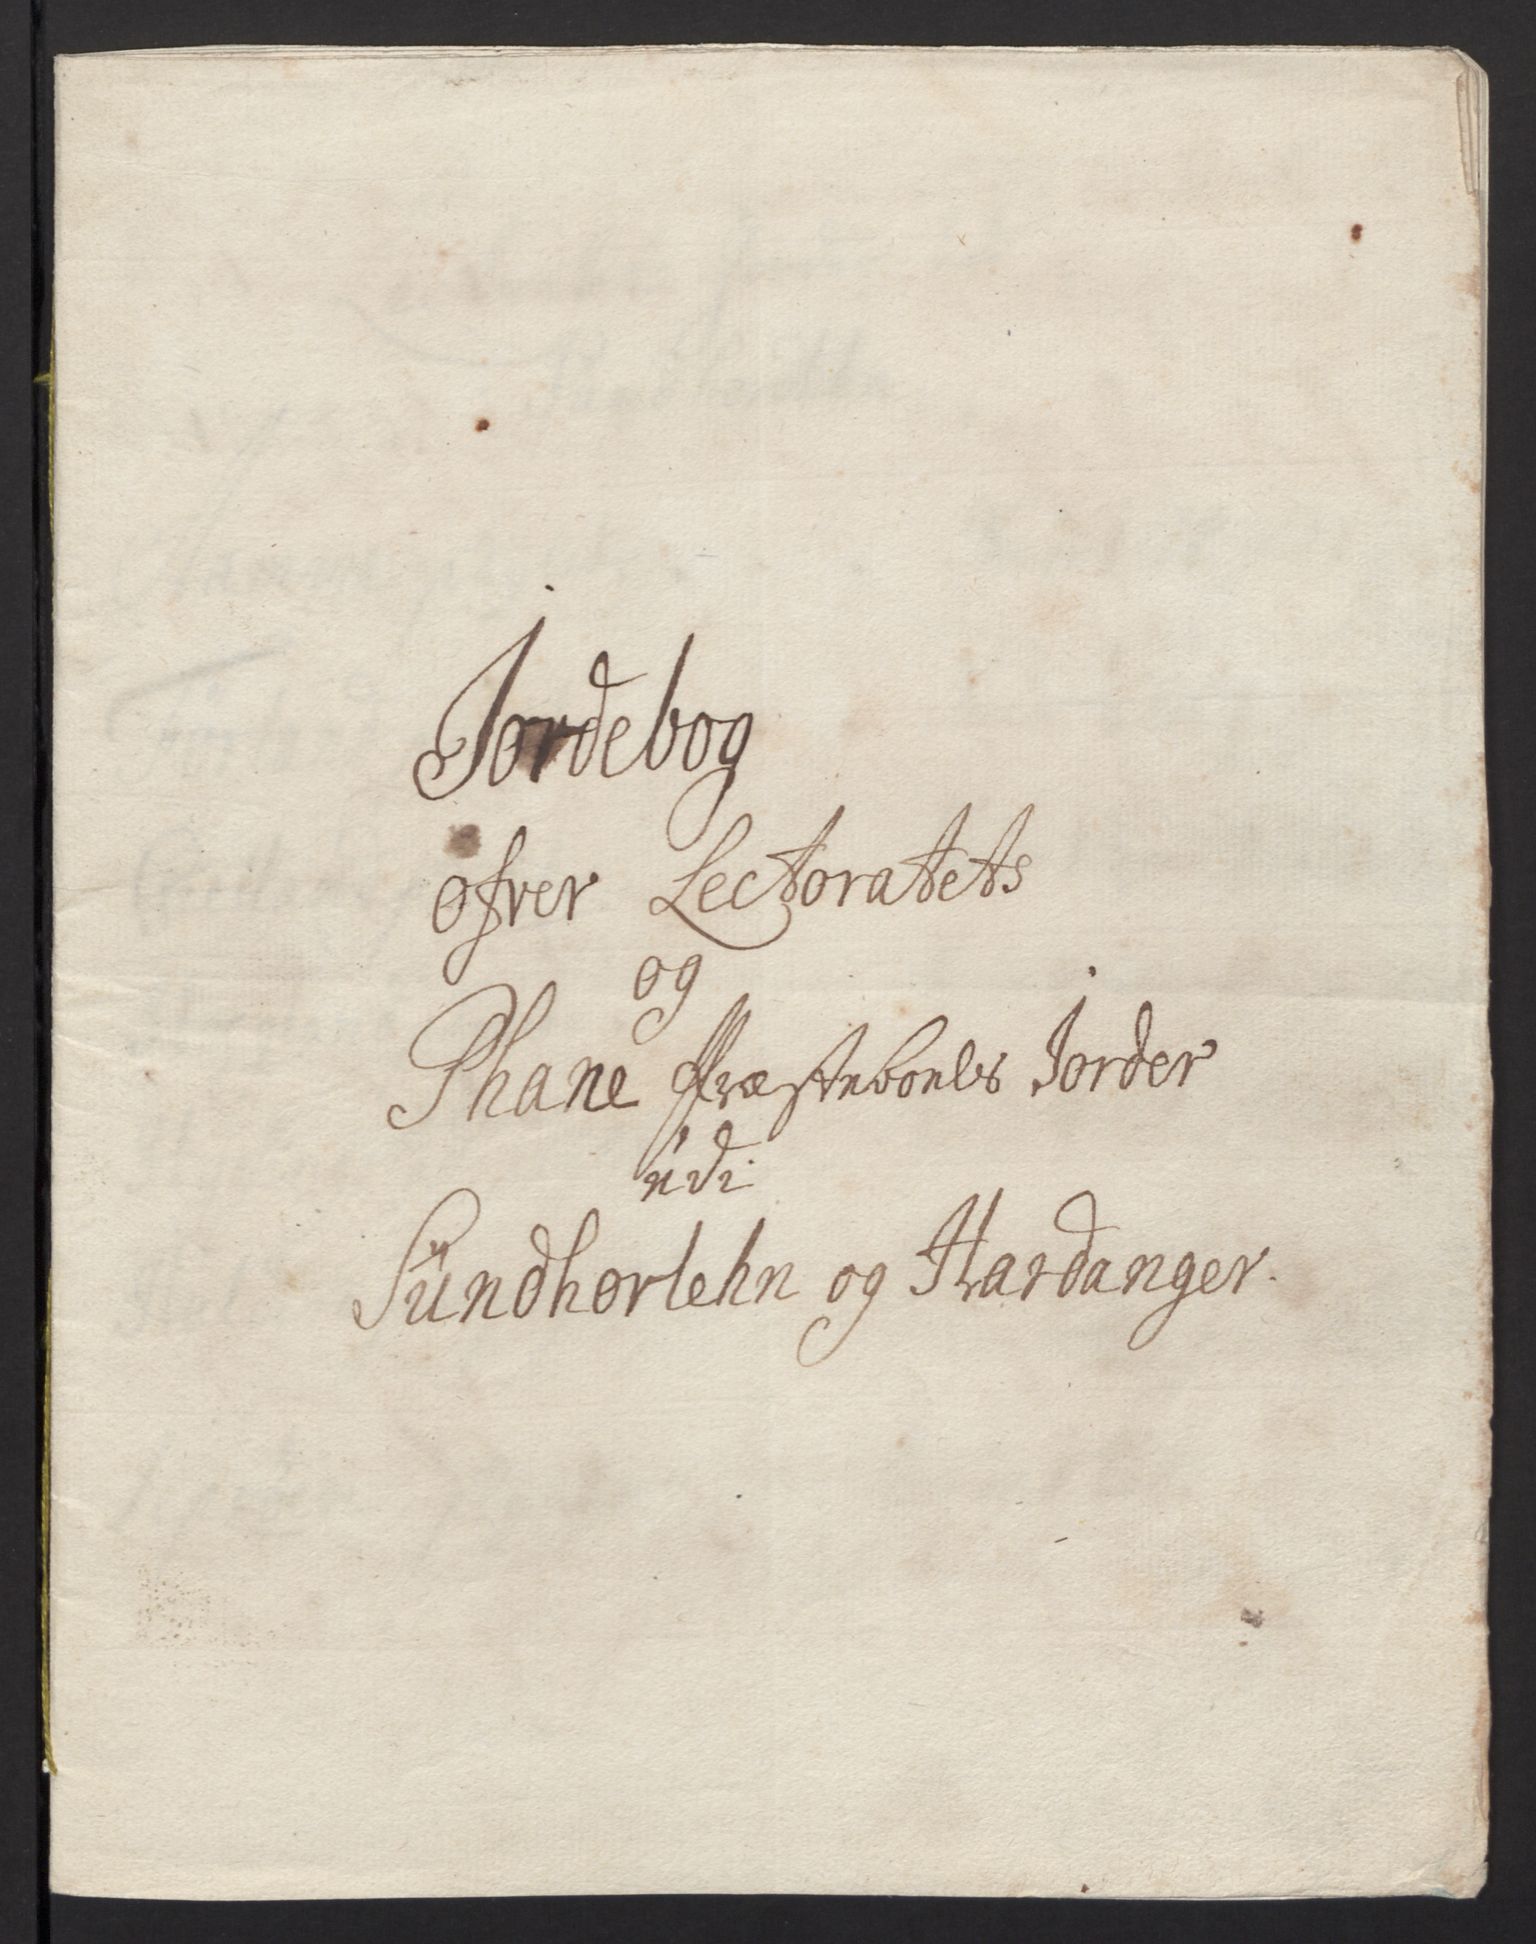 Jordebog
ofver Lectoratets
og
Phane Præsteboels Jorder
udi
Sundhorlehn og Hardanger.